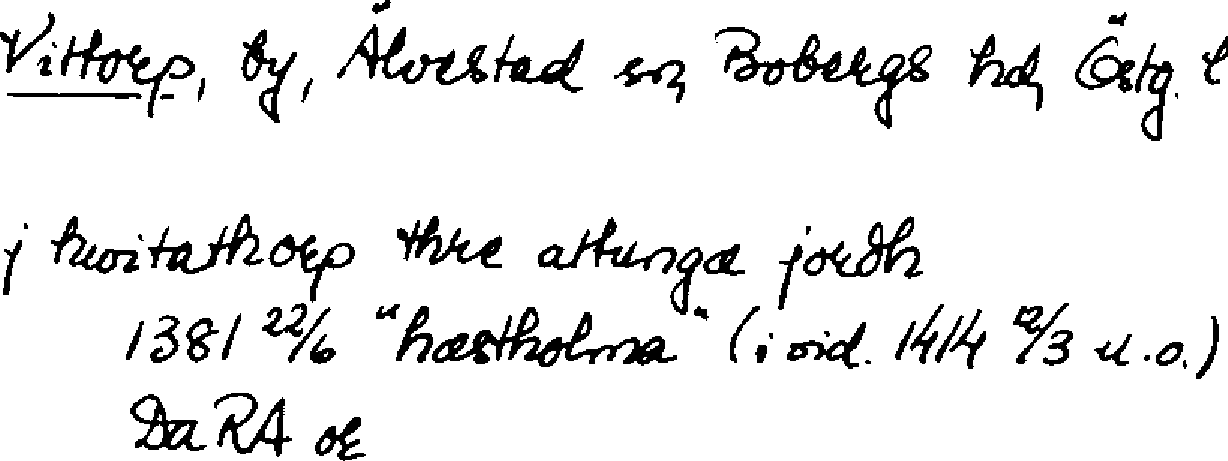 Vittorp, by, Älvestad sn, Bobergs hd, Östg. l
j hwitathorp thre attunga jordh
1381 22/6 "hæstholma" (i vid. 1414 12/3 u.o.)
DaRA or